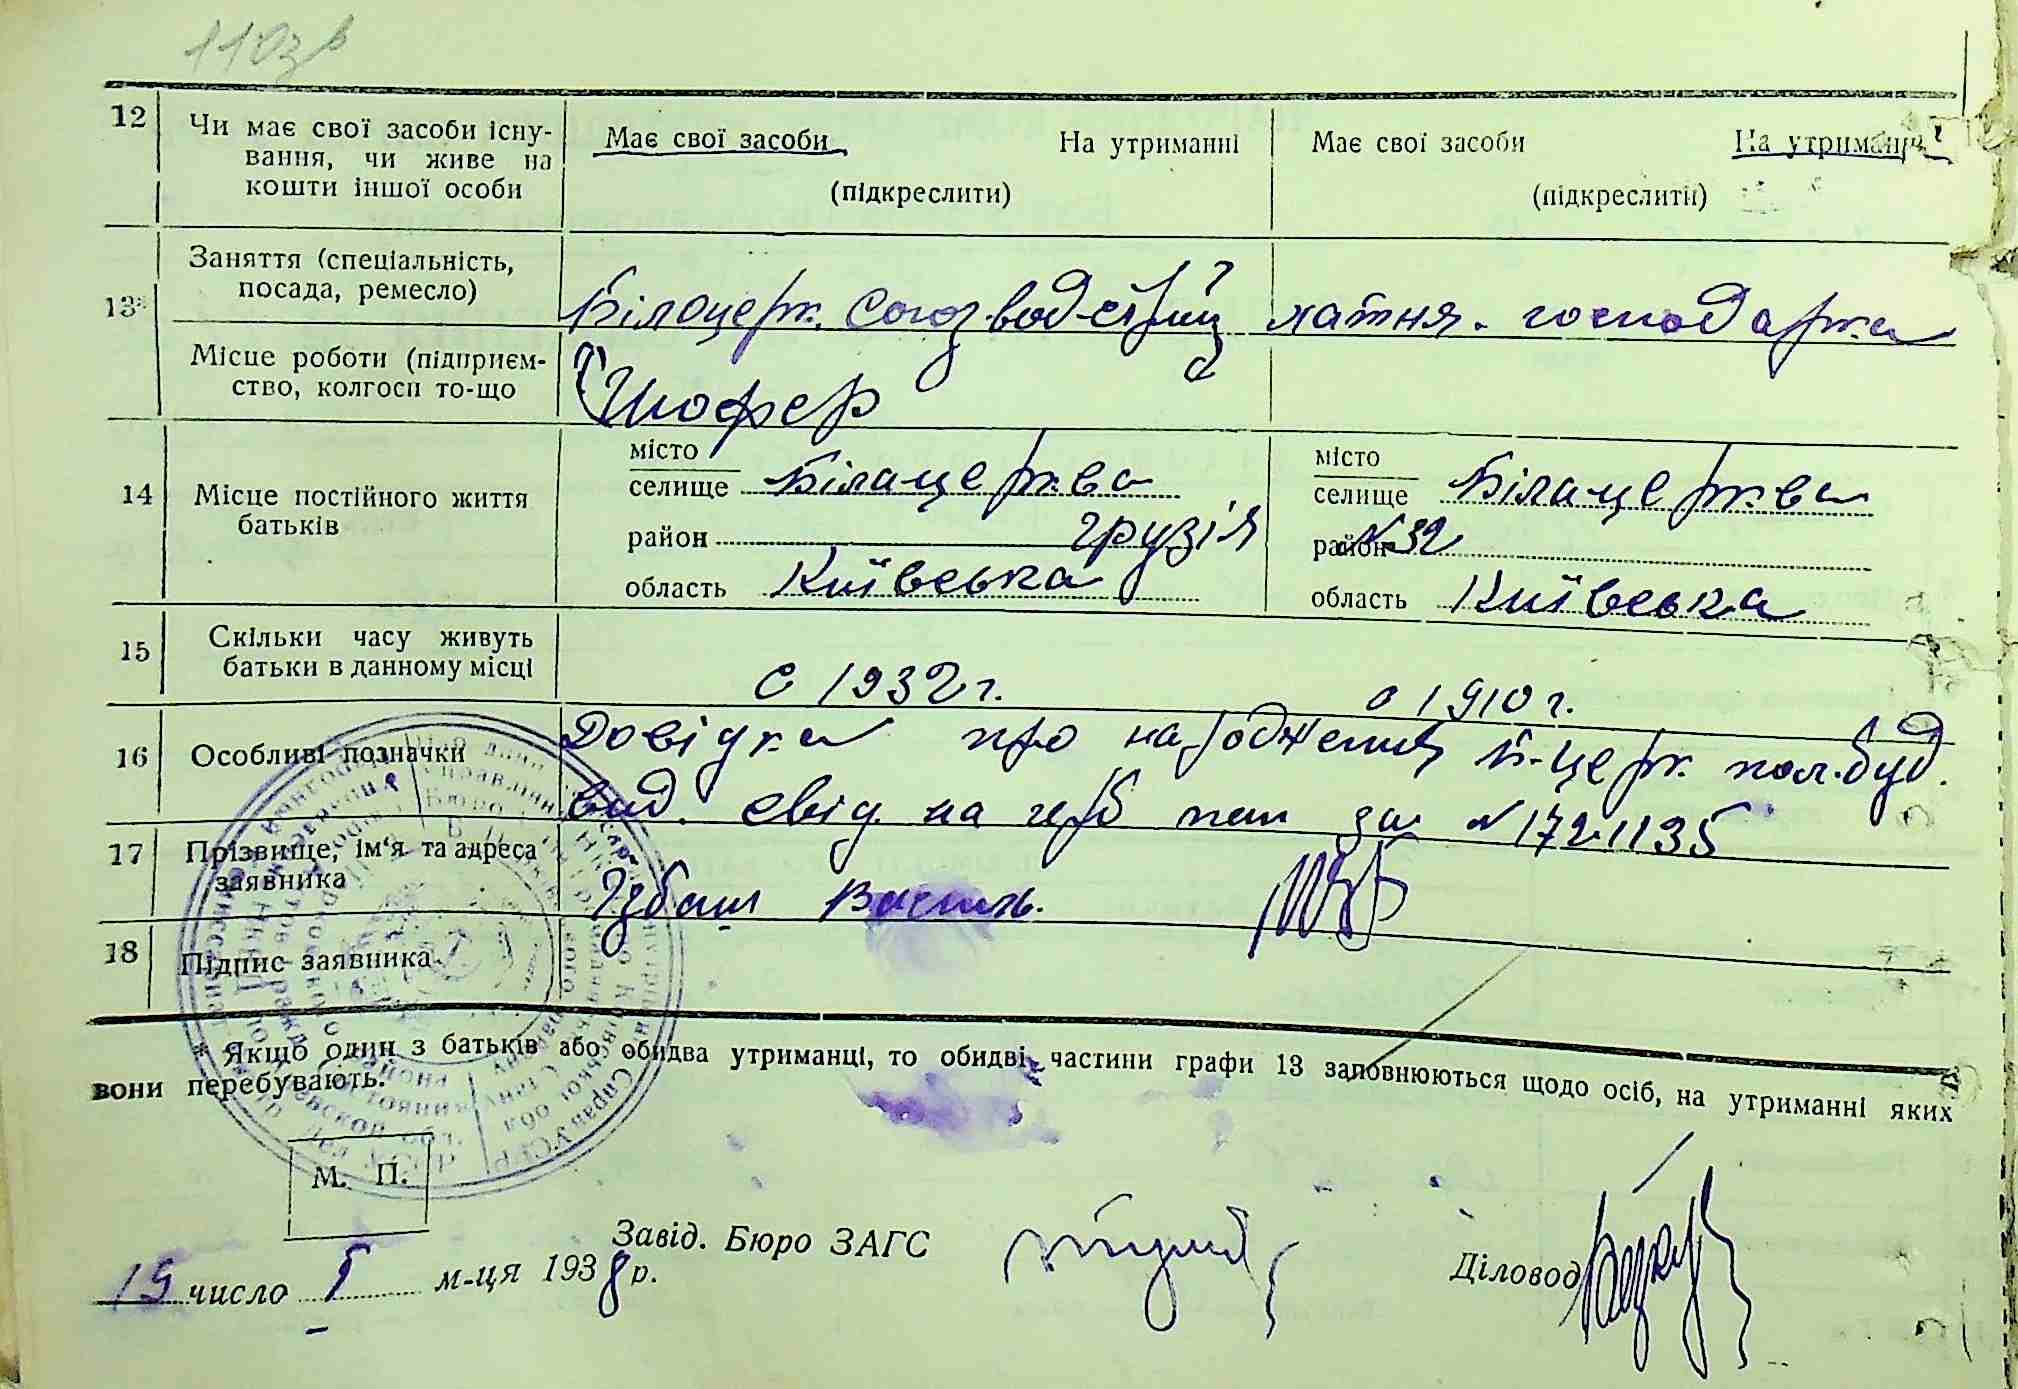 110зв
12 Чи має свої засоби існу-
вання, чи живе на
кошти іншої особи
Має свої засоби На утриманні
(підкреслити)
Має свої засоби На утриманні
(підкреслити)
13*
Заняття (спеціальність,
посада, ремесло)
Білоцерк. Союз-вод-
хатня. господарка
Місце роботи (підприєм-
ство, колгосп то-що
Шофер
14 Місце постійного життя
батьків
місто
селище Білацерква
район грузія
область Київська
місто
селище Білацерква
район №32
область Київська
15 Скільки часу живуть
батьки в данному місці
с 1932 г.
с 1910 г.
16 Особливі позначки
Довідка про народження Б-церк. пол.буд.
вид. свід на герб пап за №1721135
17 Прізвище, ім'я та адреса
заявника
Ізбаш Василь.
18 Підпис заявника
* Якщо один з батьків або обидва утриманці, то обидві частини графи 13 заповнюються щодо осіб, на утриманні яких
вони перебувають.
М. П.
Завід. Бюро ЗАГС
Діловод
15 число 5 м-ця 1938 р.